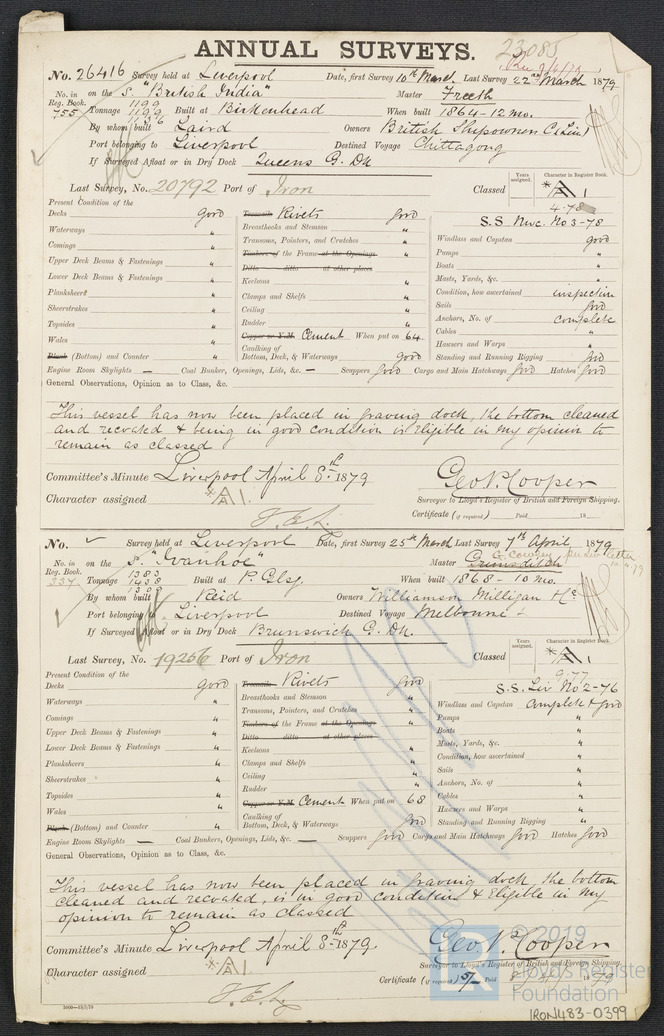 23085
ANNUAL SURVEYS.
No. 26416 Survey held at Liverpool Date, first Survey 10th March Last Survey 22nd March 1879
No. in Reg. Book. 755 on the S. "British India" Master Freeth
Tonnage 1199 1199 1136 Built at Birkenhead When built 1864 - 12 mo.
By whom built Laird Owners British Shipowners Co Lim
Port belonging to Liverpool Destined Voyage Chittagong
If Surveyed Afloat or in Dry Dock Queens G. Dk
Last Survey, No. 20792 Port of Iron Classed
Years assigned. Character in Register Book.
A 1
4.78
S.S. Nwc. No 3-78
Present Condition of the
Decks good
Waterways "
Comings "
Upper Deck Beams & Fastenings "
Lower Deck Beams & Fastenings "
Planksheers "
Sheerstrakes "
Topsides "
Wales "
Blank (Bottom) and Counter "
Treenails Rivets good
Breasthooks and Stemson "
Transoms, Pointers, and Crutches "
Timbers of the Frame at the Openings "
Ditto ditto at other places "
Keelsons "
Clamps and Shelfs "
Ceiling "
Rudder "
Copper or Y.M. Cement When put on 64
Caulking of Bottom, Deck, & Waterways good
Windlass and Capstan good
Pumps "
Boats "
Masts, Yards, &c. "
Condition, how ascertained inspection
Sails good
Anchors, No. of complete
Cables "
Hawsers and Warps "
Standing and Running Rigging good
Engine Room Skylights — Coal Bunker, Openings, Lids, &c. — Scuppers good Cargo and Main Hatchways good Hatches good
General Observations, Opinion as to Class, &c.
This vessel has now been placed in graving dock, the bottom cleaned
and recoated & being in good condition is Eligible in my opinion to
remain as classed
Committee's Minute Liverpool April 8th 1879 Geo. P. Cooper
Surveyor to Lloyd's Register of British and Foreign Shipping.
Character assigned A 1.
Certificate (if required) Paid 18
No. Survey held at Liverpool Date, first Survey 25th March Last Survey 7th April 1879
No. in Reg. Book. 337 on the S. "Ivanhoe" Master Grumsditch
Tonnage 1383 1458 1308 Built at P. Glsg. When built 1868 - 10 mo.
By whom built Reid Owners Williamson Milligan & Co
Port belonging to Liverpool Destined Voyage Melbourne
If Surveyed Afloat or in Dry Dock Brunswick G. Dk.
Last Survey, No. 19256 Port of Iron Classed
Years assigned. Character in Register Book.
A 1
9.77
S.S. Liv No 2-76
Present Condition of the
Decks good
Waterways "
Comings "
Upper Deck Beams & Fastenings "
Lower Deck Beams & Fastenings "
Planksheers "
Sheerstrakes "
Topsides "
Wales "
Blank (Bottom) and Counter "
Treenails Rivets good
Breasthooks and Stemson "
Transoms, Pointers, and Crutches "
Timbers of the Frame at the Openings "
Ditto ditto at other places "
Keelsons "
Clamps and Shelfs "
Ceiling "
Rudder "
Copper or Y.M. Cement When put on 68
Caulking of Bottom, Deck, & Waterways good
Windlass and Capstan complete & good
Pumps "
Boats "
Masts, Yards, &c. "
Condition, how ascertained "
Sails "
Anchors, No. of "
Cables "
Hawsers and Warps "
Standing and Running Rigging "
Engine Room Skylights — Coal Bunkers, Openings, Lids, &c. — Scuppers good Cargo and Main Hatchways good Hatches good
General Observations, Opinion as to Class, &c.
This vessel has now been placed in graving dock, the bottom
cleaned and recoated, is in good condition & Eligible in my
opinion to remain as classed
Committee's Minute Liverpool April 8th 1879. Geo. P. Cooper
Surveyor to Lloyd's Register of British and Foreign Shipping.
Character assigned A 1
Certificate (if required) 5/- Paid 1879
© 2019
Lloyd's Register
Foundation
IRON483-0399